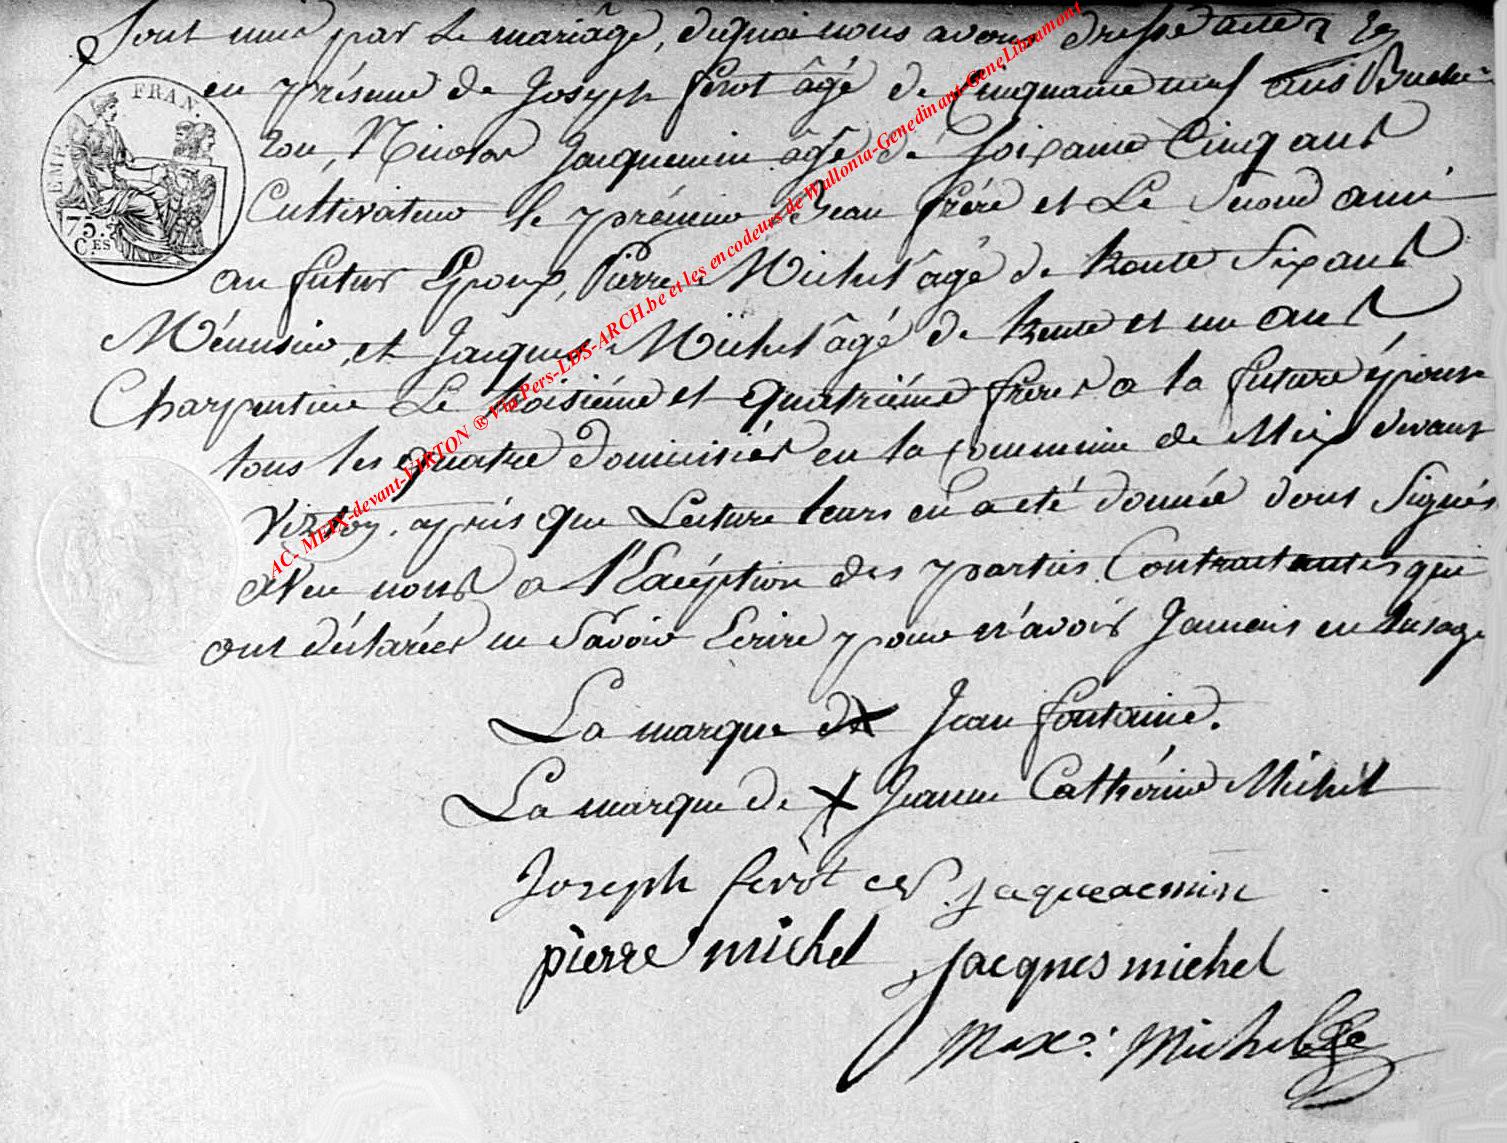 Sont unis par Le mariage, dequoi nous avons dressé acte
en présence de Joseph ferot âgé de Cinquante neuf ans Buche-
ron, Nicolas Jacquemin âgé de soixante Cinq ans
Cultivateur le prémier Beau frére et Le Second ami
au futur Epoux, Pierre Michel âgé de trente Six ans
Ménusier, et Jacques Michel âgé de trente et un ans
Charpentier Le troisiéme et quatriéme frères a la future épouse
tous les quatre domiciliés en la commune de Meix devant
Virton. aprés que Lecture leurs en a été donnée dont Signés
avec nous a l'Excéption des parties Contractantes qui
ont déclarées ne Savoir Ecrire pour n'avoir Jamais eu l'usage
La marque de x Jean fontaine.
La marque de x Jeanne Cathérine Michel
Joseph ferot jaqueacmin
pierre michel jacques michel
Max: Michel
EMP. FRAN.
75. CES
AC- MEIX-devant-VIRTON ® Via Pers-LDS-ARCH.be et les encodeurs de Wallonia-Genedinant-GeneLibramont